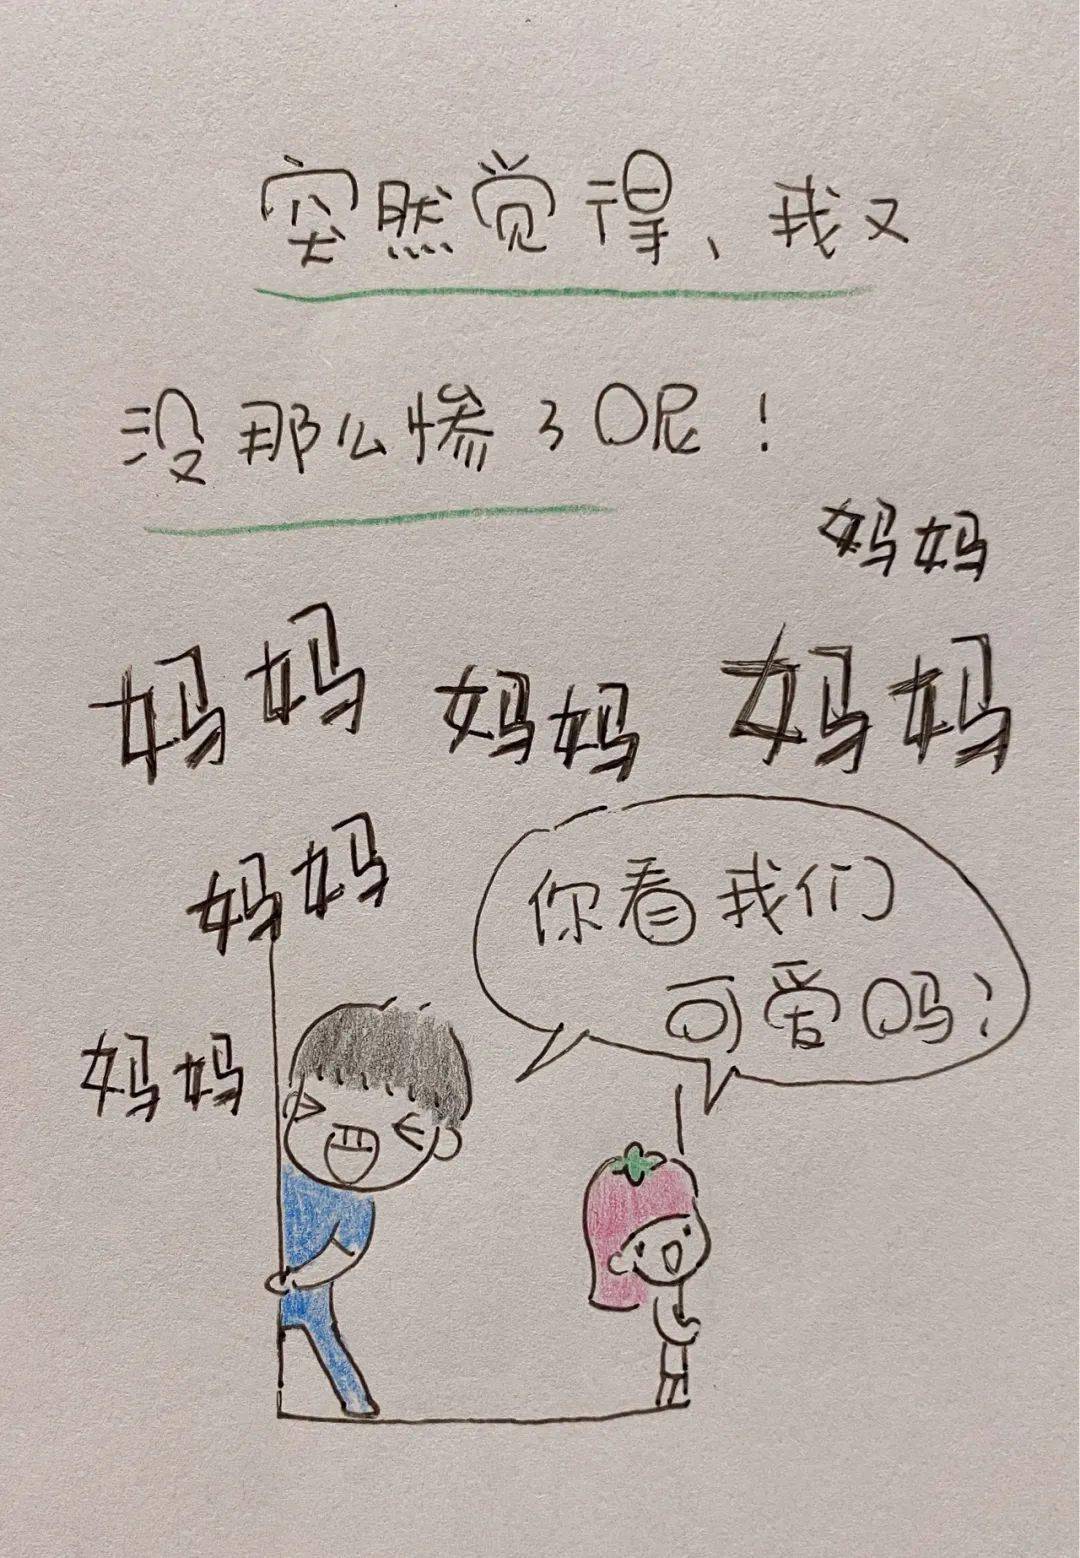 突然觉得、我又
没那么惨了呢！
妈妈
妈妈 妈妈 妈妈
妈妈
你看我们
可爱吗？
妈妈